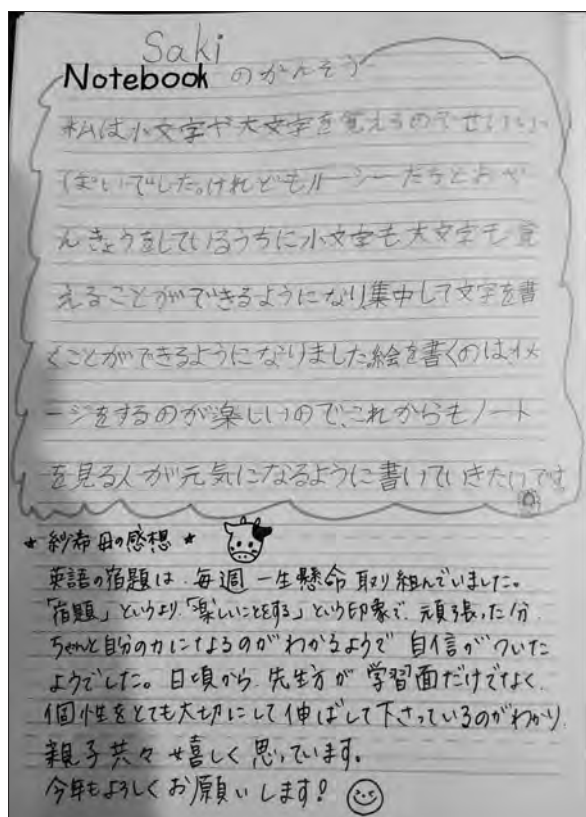 Saki
Notebook のかんそう
私は小文字や大文字を覚えるのでせいいい
ぱいでした。けれどもルーシーたちとおべ
んきょうをしているうちに小文字も大文字も覚
えることができるようになり、集中して文字を書
くことができるようになりました。絵を書くのは、イメ
ージをするのが楽しいので、これからもノート
を見る人が元気になるように書いていきたいです。
★ 紗希母の感想 ★
英語の宿題は、毎週 一生懸命 取り組んでいました。
「宿題」というより、「楽しいことをする」という印象で、頑張った分、
ちゃんと自分の力になるのがわかるようで 自信がついた
ようでした。日頃から、先生方が 学習面だけでなく、
個性をとても大切にして伸ばして下さっているのがわかり、
親子共々 嬉しく思っています。
今年もよろしくお願いします!